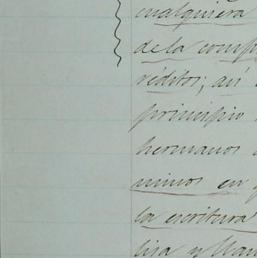 cualquiera
de la comp
réditos; así
principio
hermanos
minos en
la escritura
lisa y llan